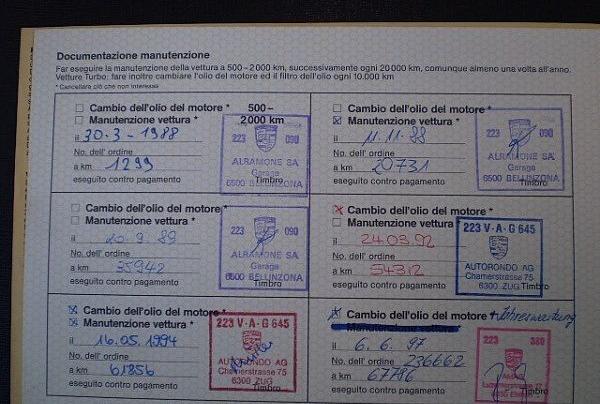 Documentazione manutenzione
Far eseguire la manutenzione della vettura a 500–2000 km, successivamente ogni 20 000 km, comunque almeno una volta all'anno.
Vetture Turbo: fare inoltre cambiare l'olio del motore ed il filtro dell'olio ogni 10.000 km
* Cancellare ciò che non interessa
Cambio dell'olio del motore * 500–
Manutenzione vettura * 2000 km
il 30-3-1988
No. dell' ordine
a km 1299
eseguito contro pagamento Timbro
223 090
ALRAMONE SA
Garage
6500 BELLINZONA
Cambio dell'olio del motore *
Manutenzione vettura *
il 11.11.88
No. dell' ordine
a km 20731
eseguito contro pagamento Timbro
223 090
ALRAMONE SA
Garage
6500 BELLINZONA
Cambio dell'olio del motore *
Manutenzione vettura *
il 20.9.89
No. dell' ordine
a km 35942
eseguito contro pagamento Timbro
223 090
ALRAMONE SA
Garage
6500 BELLINZONA
Cambio dell'olio del motore *
Manutenzione vettura *
il 24.03.92
No. dell' ordine
a km 54312
eseguito contro pagamento Timbro
223 V·A·G 645
AUTORONDO AG
Chamerstrasse 75
6300 ZUG
Cambio dell'olio del motore *
Manutenzione vettura *
il 16.05.1994
No. dell' ordine
a km 61856
eseguito contro pagamento Timbro
223 V·A·G 645
AUTORONDO AG
Chamerstrasse 75
6300 ZUG
Cambio dell'olio del motore + Jahreswartung
Manutenzione vettura *
il 6.6.97
No. dell' ordine 236662
a km 67796
eseguito contro pagamento Timbro
223 380